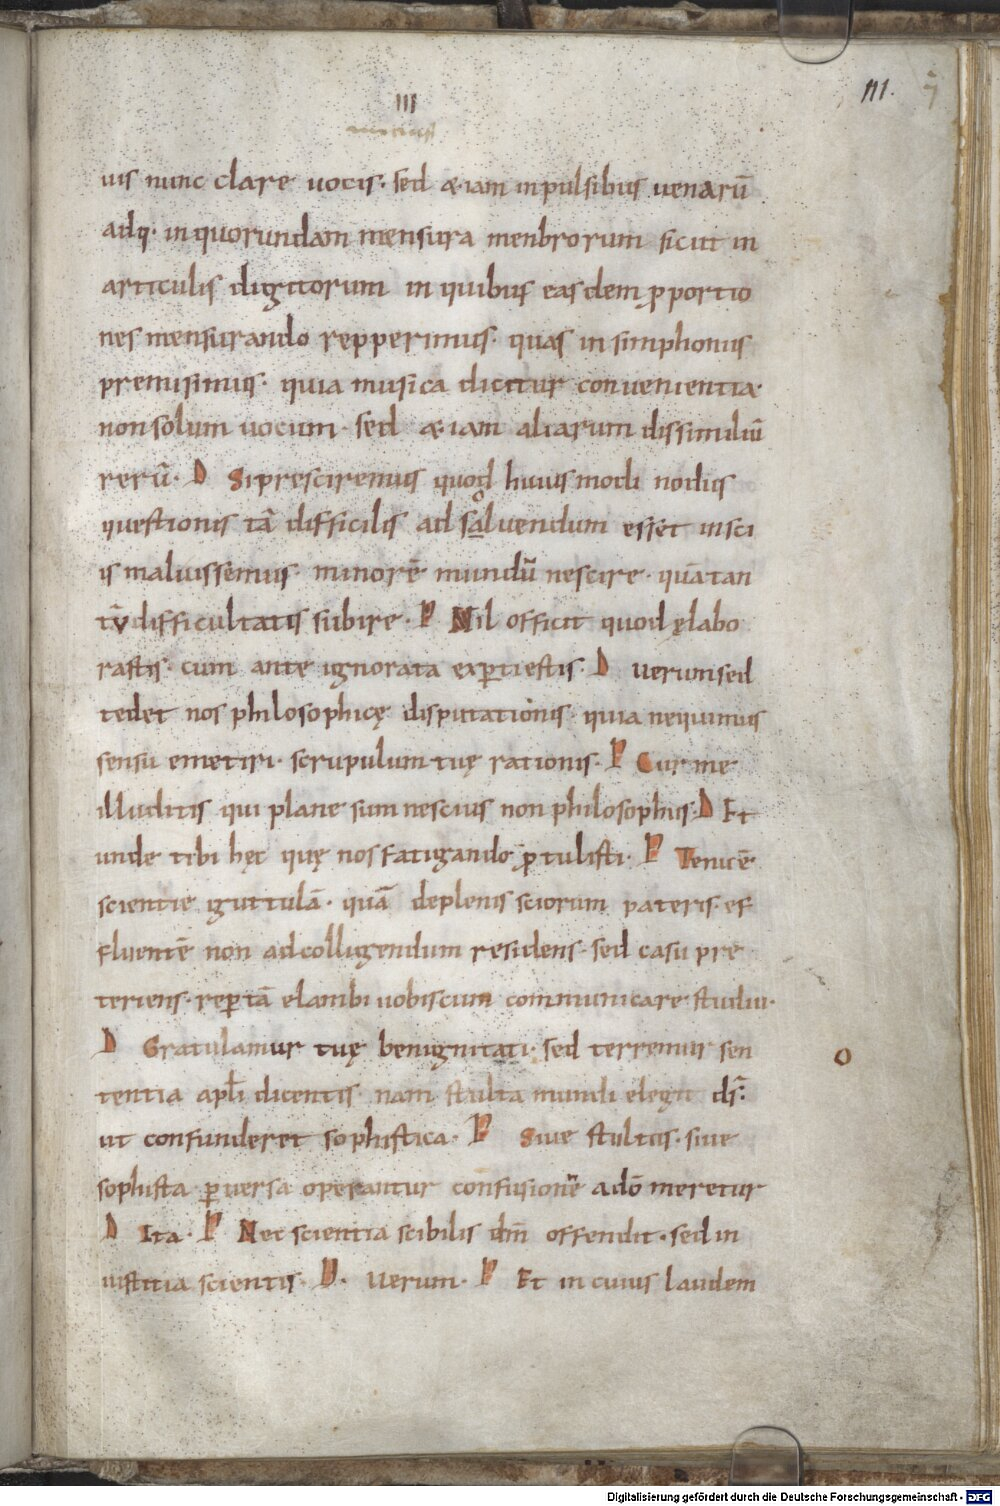 III
111.
7
uis nunc clare uocis· sed &iam inpulsibus uenarū
adq· in quorundam mensura menbrorum sicut in
articulis digitorum in quibus easdem ꝓportio
nes mensurando repperimus· quas in simphoniis
premisimus· quia musica dicitur conuenientia·
non solum uocum· sed &iam aliarum dissimiliū
rerū· D Si presciremus quod huius modi nodus
questionis tā difficilis ad saͦluendum esset insci
is maluissemus· minorē mundū nescire· quā tan
tv̄ difficultatis subire· P Nil officit quod ęlabo
rastis· cum ante ignorata exꝑti estis· D Uerum sed
tedet nos philosophicę disputationis· quia nequimus
sensu emetiri· scrupulum tuę rationis· P Cur me
illuditis qui plane sum nescius non philosophus· D Et
unde tibi hęc quę nos fatigando ꝓtulisti· P Tenuē
scientie guttulā· quā de plenis sciorum pateris· ef
fluentē non ad colligendum residens· sed casu pre
teriens· reꝑtā elambi uobiscum communicare studui·
D Gratulamur tuę benignitati· sed terremur sen
tentia apłi dicentis· nam stulta mundi elegit ds̄:
ut confunderet sophistica· P Siue stultus· siue
sophista ꝑuersa operantur confusionē a dō meretur
D Ita· P Nec scientia scibilis dn̄m offendit· sed in
iustitia scientis· D· Uerum· P Et in cuius laudem
o
Digitalisierung gefördert durch die Deutsche Forschungsgemeinschaft - DFG